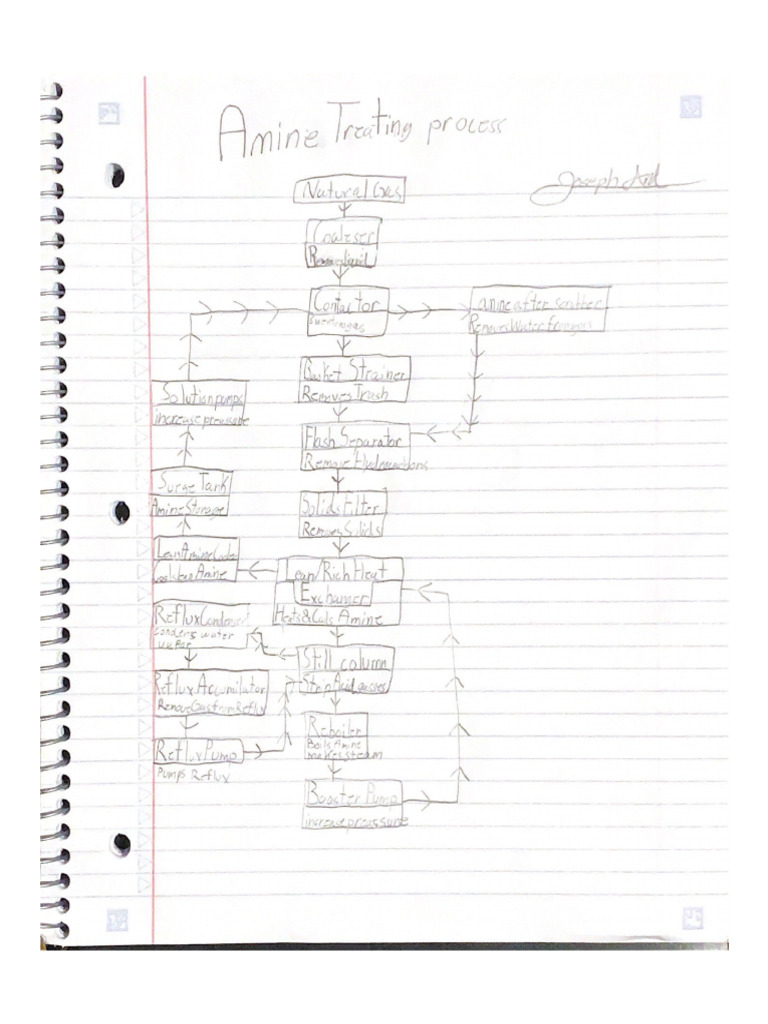 Amine Treating process
Joseph
Natural Gas
Coaleser
Removes liquid
Contactor
amine after scrubber
Removes Water from gas
Basket Strainer
Removes Trash
Solution pumps
increase pressure
Flash Separator
Remove Hydrocarbons
Surge Tank
Amine Storage
Solids Filter
Removes Solids
Lean Amine Cooler
Amine
Lean/Rich Heat
Exchanger
Heats & Cools Amine
Reflux Condenser
Condens water
Still column
Strip Acid gasses
Reflux Accumilator
Remove Gas from Reflux
Reboiler
Boils Amine
makes steam
Reflux Pump
Pumps Reflux
Booster Pump
increase preassure